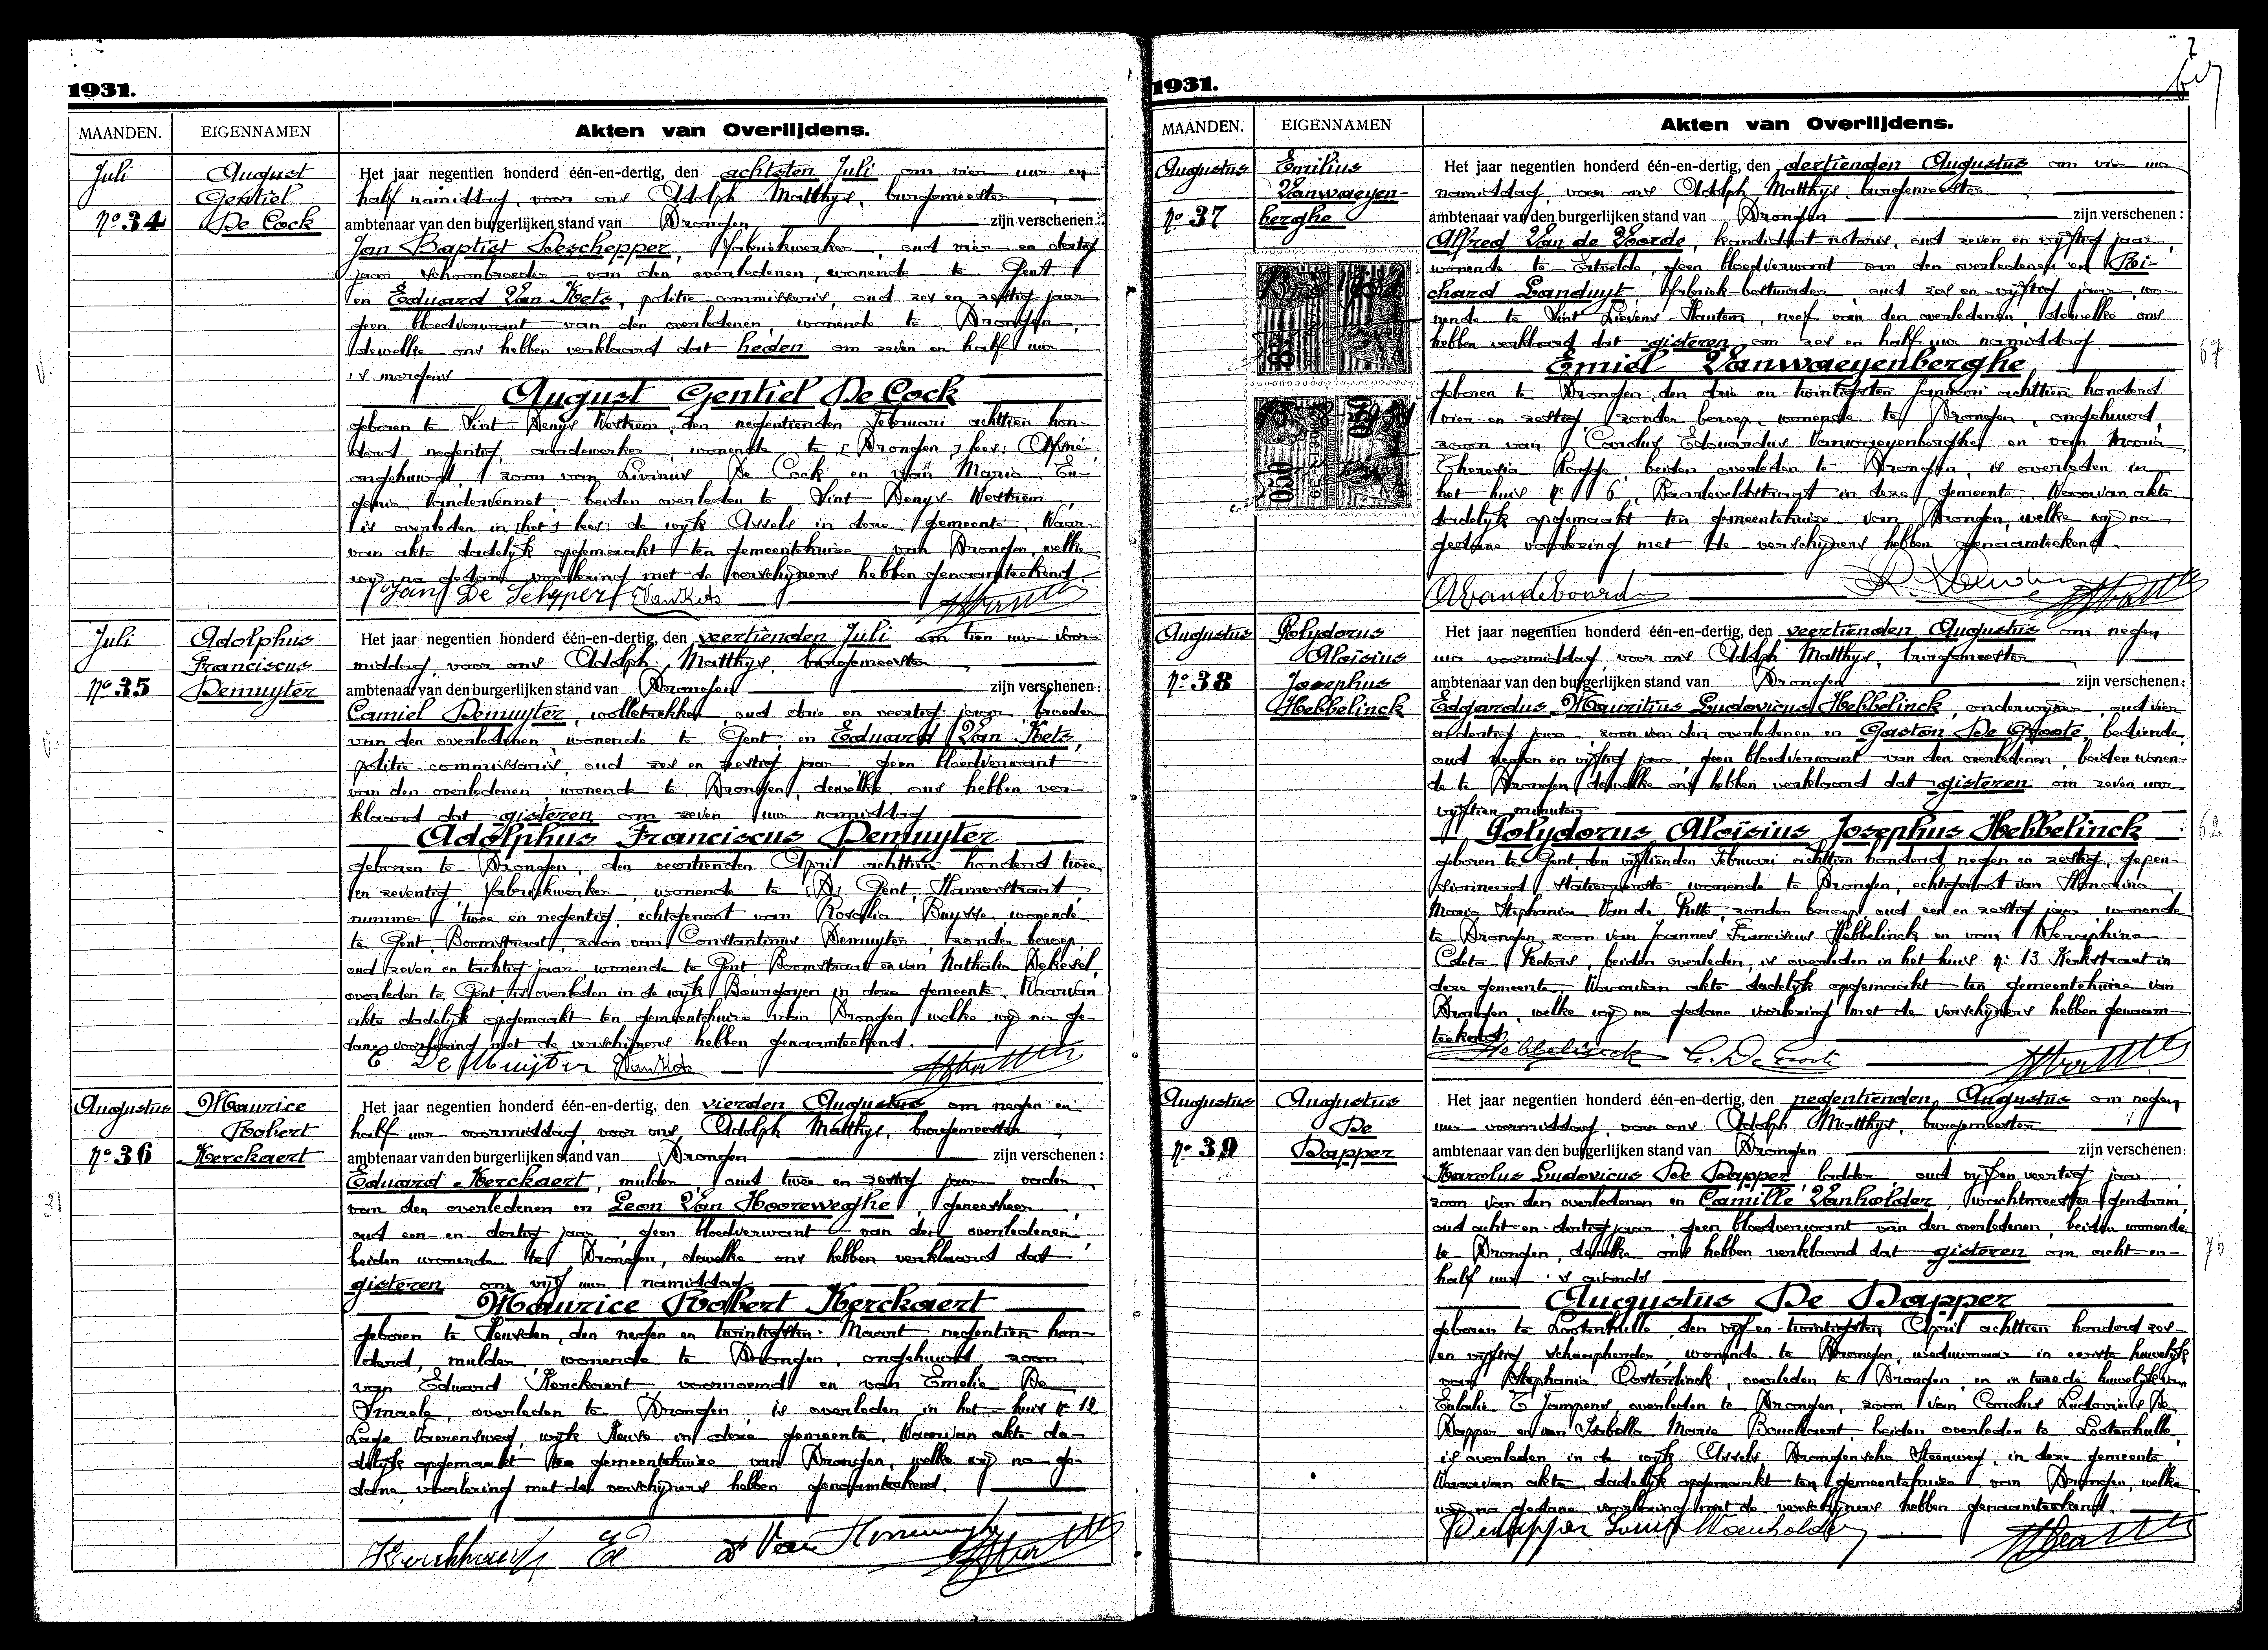 1931.
MAANDEN.
EIGENNAMEN
Akten van Overlijdens.
Juli
August
Gentiel
No 34
De Cock
Het jaar negentien honderd één-en-dertig, den achtsten Juli om vier uur en
half namiddag, voor ons Adolph Matthys, burgemeester
ambtenaar van den burgerlijken stand van Drongen zijn verschenen:
Jan Baptist Deschepper, fabriekwerker, oud vier en dertig
jaar, schoonbroeder van den overledenen, wonende te Gent
en Eduard Van Kets, politie-commissaris, oud zes en zestig jaar
geen bloedverwant van den overledenen, wonende te Drongen,
dewelke ons hebben verklaard dat heden om zeven en half uur
's morgens
August Gentiel De Cock
geboren te Sint Denys Westrem, den negentienden Februari achttien hon-
derd negentig, aardewerker, wonende te [Drongen] lees: Afsné
ongehuwd, zoon van Livinus De Cock en van Maria Eu-
genia Vandervennet, beiden overleden te Sint Denys-Westrem,
is overleden in [het] lees: de wyk Assels in deze gemeente. Waar-
van akte dadelyk opgemaakt ten gemeentehuize van Drongen, welke
wy na gedane voorlezing met de verschyners hebben genaamteekend.
Jan De Schepper EVanKets
Juli
Adolphus
Franciscus
No 35
Demuyter
Het jaar negentien honderd één-en-dertig, den veertienden Juli om tien uur voor-
middag, voor ons Adolph Matthys, burgemeester
ambtenaar van den burgerlijken stand van Drongen zijn verschenen:
Camiel Demuyter, wolletrekker, oud drie en veertig jaar, broeder
van den overledenen, wonende te Gent, en Eduard Van Kets,
politie-commissaris, oud zes en zestig jaar, geen bloedverwant
van den overledenen, wonende te Drongen, dewelke ons hebben ver-
klaard dat gisteren om zeven uur namiddag
Adolphus Franciscus Demuyter
geboren te Drongen, den veertienden April achttien honderd twee
en zeventig, fabriekwerker, wonende te [D] Gent, Hamerstraat,
nummer twee en negentig, echtgenoot van Rosalia Buysse, wonende
te Gent, Boomstraat, zoon van Constantinus Demuyter, zonder beroep,
oud zeven en tachtig jaar, wonende te Gent, Boomstraat en van Nathalia Dekesel,
overleden te Gent, is overleden in de wyk Bourgoyen in deze gemeente. Waarvan
akte dadelyk opgemaakt ten gemeentehuize van Drongen, welke wy na ge-
dane voorlezing met de verschijners hebben genaamteekend.
C De Muijter EVanKets
Augustus
Maurice
Robert
No 36
Kerckaert
Het jaar negentien honderd één-en-dertig, den vierden Augustus om negen en
half uur voormiddag, voor ons, Adolph Matthys, burgemeester
ambtenaar van den burgerlijken stand van Drongen zijn verschenen:
Eduard Kerckaert, mulder, oud twee en zestig jaar, vader
van den overledenen en Leon Van Hooreweghe, geneesheer,
oud een en dertig jaar, geen bloedverwant van den overledenen,
beiden wonende te Drongen, dewelke ons hebben verklaard dat
gisteren om vijf uur namiddag
Maurice Robert Kerckaert
geboren te Heusden, den negen en twintigsten Maart negentien hon-
derd, mulder, wonende te Drongen, ongehuwd, zoon
van Eduard Kerckaert, voornoemd en van Emelie De
Smaele, overleden te Drongen, is overleden in het huis No 12
Lage Vaerensweg, wyk Heuse in deze gemeente. Waarvan akte da-
delyk opgemaakt ten gemeentehuize van Drongen, welke wy na ge-
dane voorlezing met de verschyners hebben genaamteekend.
1931.
MAANDEN.
EIGENNAMEN
Akten van Overlijdens.
Augustus
Emilius
Vanwaeyen-
No 37
berghe
Het jaar negentien honderd één-en-dertig, den dertienden Augustus om vier uur
namiddag, voor ons Adolph Matthys, burgemeester
ambtenaar van den burgerlijken stand van Drongen zijn verschenen:
Alfred Van de Voorde, kandidaat notaris, oud zeven en vyftig jaar,
wonende te Ertvelde, geen bloedverwant van den overledenen en Ri-
chard Landuyt, fabriek-bestuurder, oud zes en vyftig jaar, wo-
nende te Sint Lievens-Hautem, neef van den overledenen, dewelke ons
hebben verklaard dat gisteren om zes en half uur namiddag
Emiel Vanwaeyenberghe
67
geboren te Drongen, den drie en twintigsten Januari achttien honderd
vier-en-zestig, zonder beroep, wonende te Drongen, ongehuwd,
zoon van Carolus Edouardus Vanwaeyenberghe en van Maria
Theresia Rogge, beiden overleden te Drongen, is overleden in
het huis No 6, Baarleveldstraat in deze gemeente. Waarvan akte
dadelyk opgemaakt ten gemeentehuize van Drongen, welke wy na
gedane voorlezing met de verschyners hebben genaamteekend.
AVandevoorde
Augustus
Polydorus
Aloïsius
No 38
Josephus
Hebbelinck
Het jaar negentien honderd één-en-dertig, den veertienden Augustus om negen
uur voormiddag, voor ons Adolph Matthys, burgemeester
ambtenaar van den burgerlijken stand van Drongen zijn verschenen:
Edgardus Mauritius Ludovicus Hebbelinck, onderwyzer, oud vier
en dertig jaar, zoon van den overledenen en Gaston De Groote, bediende,
oud negen en vyftig jaar, geen bloedverwant van den overledenen, beiden wonen-
de te Drongen, dewelke ons hebben verklaard dat gisteren om zeven uur
vyftien minuten
Polydorus Aloïsius Josephus Hebbelinck
62
geboren te Gent, den vyftienden Februari achttien honderd negen en zestig, gepen-
sionneerd statieoverste, wonende te Drongen, echtgenoot van Honorina
Maria Stephania Van de Putte, zonder beroep, oud een en zestig jaar, wonende
te Drongen, zoon van Joannes Franciscus Hebbelinck en van Seraphina
Coleta Peeters, beiden overleden, is overleden in het huis No 13 Kerkstraat in
deze gemeente. Waarvan akte dadelyk opgemaakt ten gemeentehuize van
Drongen, welke wy na gedane voorlezing met de verschyners hebben genaam-
teekend.
Hebbelinck G. De Groote
Augustus
Augustus
De
No 39
Dapper
Het jaar negentien honderd één-en-dertig, den negentienden Augustus om negen
uur voormiddag, voor ons Adolph Matthys, burgemeester
ambtenaar van den burgerlijken stand van Drongen zijn verschenen:
Karolus Ludovicus De Dapper, ladder, oud vyf en veertig jaar
zoon van den overledenen en Camille Vanholder, wachtmeester gendarm,
oud acht-en-dertig jaar, geen bloedverwant van den overledenen, beiden wonende
te Drongen, dewelke ons hebben verklaard dat gisteren om acht-en-
76
half uur 's avonds
Augustus De Dapper
geboren te Lootenhulle, den vijf-en-twintigsten April achttien honderd zes-
en vyftig, schaapherder, wonende te Drongen, weduwnaar in eerste huwelyk
van Stephania Oosterlinck, overleden te Drongen, en in tweede huwelyk van
Eulalie T'Jampens, overleden te Drongen, zoon van Carolus Ludovicus De
Dapper en van Isabella Marie Bouckaert, beiden overleden te Lootenhulle,
is overleden in de wyk Assels Drongensche Steenweg, in deze gemeente.
Waarvan akte, dadelyk opgemaakt ten gemeentehuize van Drongen, welke
wy na gedane voorlezing met de verschyners hebben genaamteekend.
Dedapper Louis Vanholder